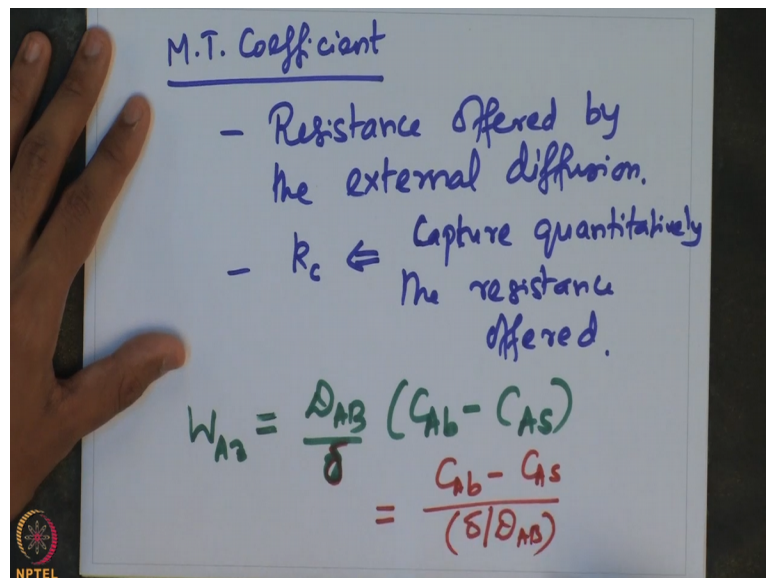 M.T. Coefficient
- Resistance offered by
the external diffusion.
- kc ⇐ Capture quantitatively
the resistance
offered.
WAz = DAB/δ (CAb - CAs)
= CAb - CAs / (δ/DAB)
NPTEL